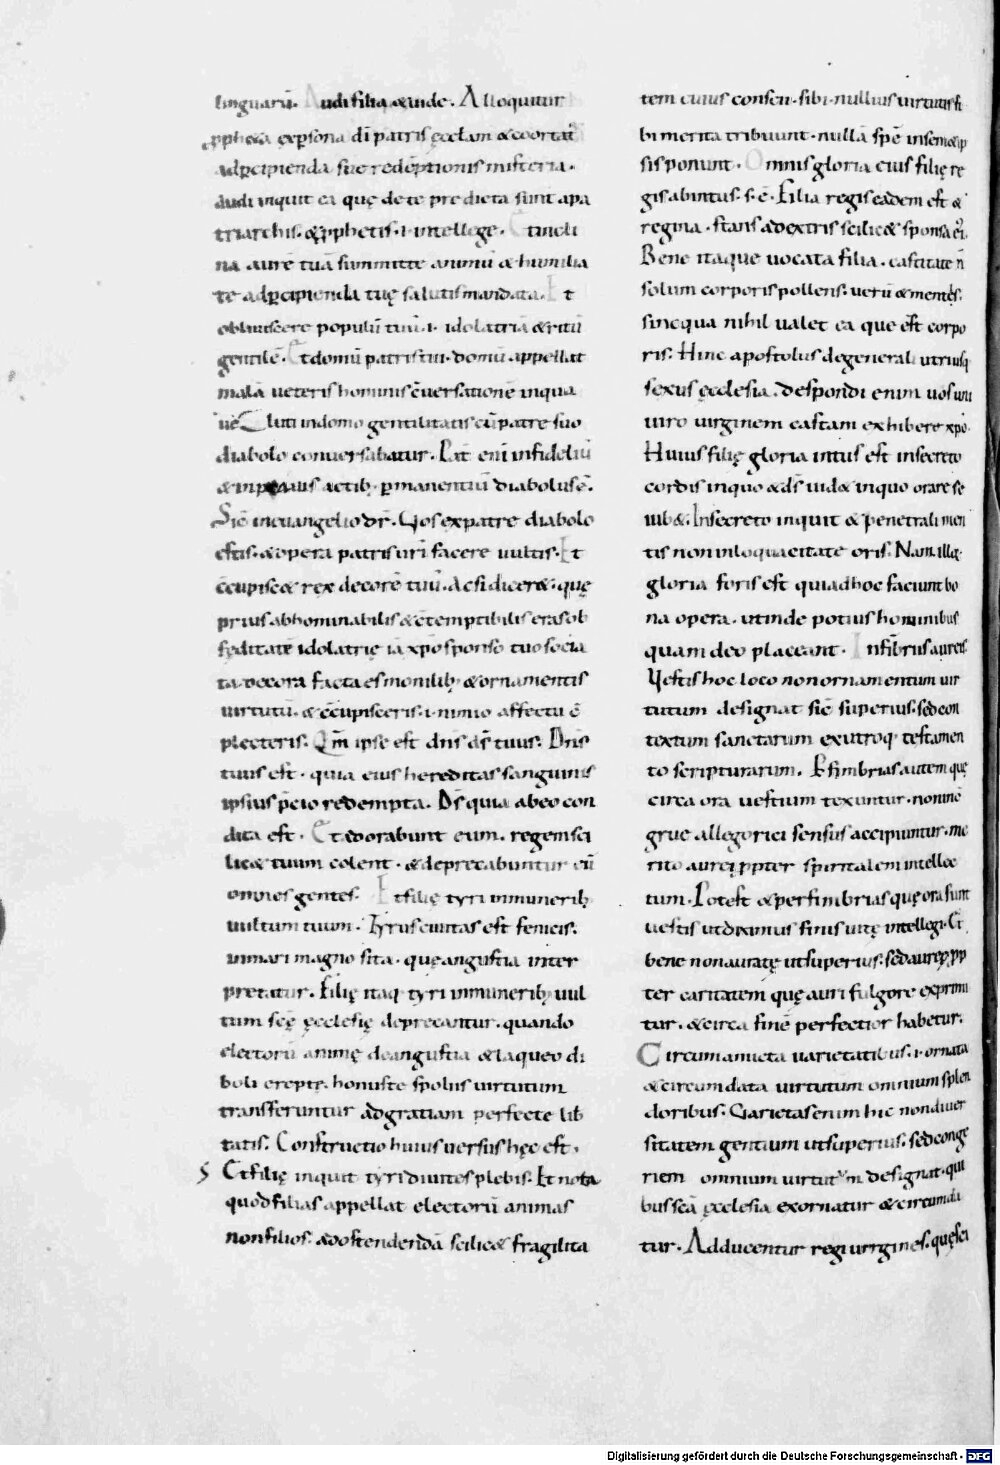 linguarū. Audi filia & uide. Alloquitur
ppheta ex psona dī patris ęcclam & coortat'
ad pcipienda sue redēptionis misteria.
Audi inquit ea quę de te predicta sunt a pa
triarchis. & pphetis .i. intellege. Et incli
na aurē tuā summitte animū & humilia
te ad pcipienda tuę salutis mandata. Et
obliuiscere populū tuū .i. idolatriā & ritū
gentilē. Et domū patris tui. domū appellat
malā ueteris hominis cūersationē in qua
Cluti in domo gentilitatis cū patre suo
diabolo conuersabatur. Pat' eni infideliū
& in actib; pmanentiū diabolus ē.
Sic in euangelio dr. Uos ex patre diabolo
estis. & opera patris urī facere uultis. Et
cūcupisc& rex decorē tuū. Ac si dicer&. quę
prius abhominabilis & cōtemptibilis eras ob
feditatē idolatrię iā xpo sponso tuo socia
ta decora facta es monilib; & ornamentis
uirtutū. & cōcupisceris .i. nimio affectu cō
plecteris. Qm̄ ipse est dn̄s dS tuus. Dn̄s
tuus est. quia eius hereditas sanguinis
ipsius p̄cio redempta. DS̄ quia ab eo con
dita est. Et adorabunt eum. regem sci
lic& tuum colent. & deprecabuntur eū
omnes gentes. Et filię tyri in munerib;
uultum tuum. Tyrus ciuitas est fenicis.
in mari magno sita. quę angustia inter
pretatur. Filię itaq; tyri in munerib; uul
tum scę ęcclesię deprecantur. quando
electorū animę de angustia & laqueo di
boli erepte. honuste spoliis uirtutum
transferuntur ad gratiam perfecte lib
tatis. Constructio huius uersus hęc est.
5 Et filię inquit tyri diuites plebis. Et nota
quod filias appellat electorū animas
non filios. ad ostendendā scilic& fragilita
tem cuius conscii. sibi. nullius uirtutis si
bi merita tribuunt. nullā spē in sem&ip
sis ponunt. Omnis gloria eius filię re
gis ab intus. s. ē. Filia regis eadem est &
regina. stans a dextris scilic& sponsa ei.
Bene itaque uocata filia. castitate ñ
solum corporis pollens. uerū & mentis.
sine qua nihil ualet ea que est corpo
ris. Hinc apostolus de generali utriusq
sexus ęcclesia. Despondi enim uos uni
uiro uirginem castam exhibere xpo.
Huius filię gloria intus est in secreto
cordis in quo & dS̄ uid& in quo orare se
iub&. In secreto inquit & penetrali men
tis non in loquacitate oris. Nam illa
gloria foris est qui ad hoc faciunt bo
na opera. ut inde potius hominibus
quam deo placeant. In fibriis aureis.
Uestis hoc loco non ornamentum uir
tutum designat sic superius. sed con
textum sanctarum ex utroq; testamen
to scripturarum. P fimbrias autem quę
circa ora uestium texuntur. non incō
grue allegorici sensus accipiuntur. me
rito aurei ppter spiritalem intellec
tum. Potest & per fimbrias quę ora sunt
uestis ut diximus finis uitę intellegi. Et
bene non auratę ut superius. sed aureę. pp
ter caritatem quę auri fulgore exprimi
tur. & circa finē perfectior habetur.
Circumamicta uarietatibus .i. ornata
& circumdata uirtutum omnium splen
doribus. Uarietas enim hic non diuer
sitatem gentium ut superius. sed conge
riem omnium uirtutum designat. qui
bus scā ęcclesia exornatur & circumda
tur. Adducentur regi uirgines. quę sci
Digitalisierung gefördert durch die Deutsche Forschungsgemeinschaft - DFG